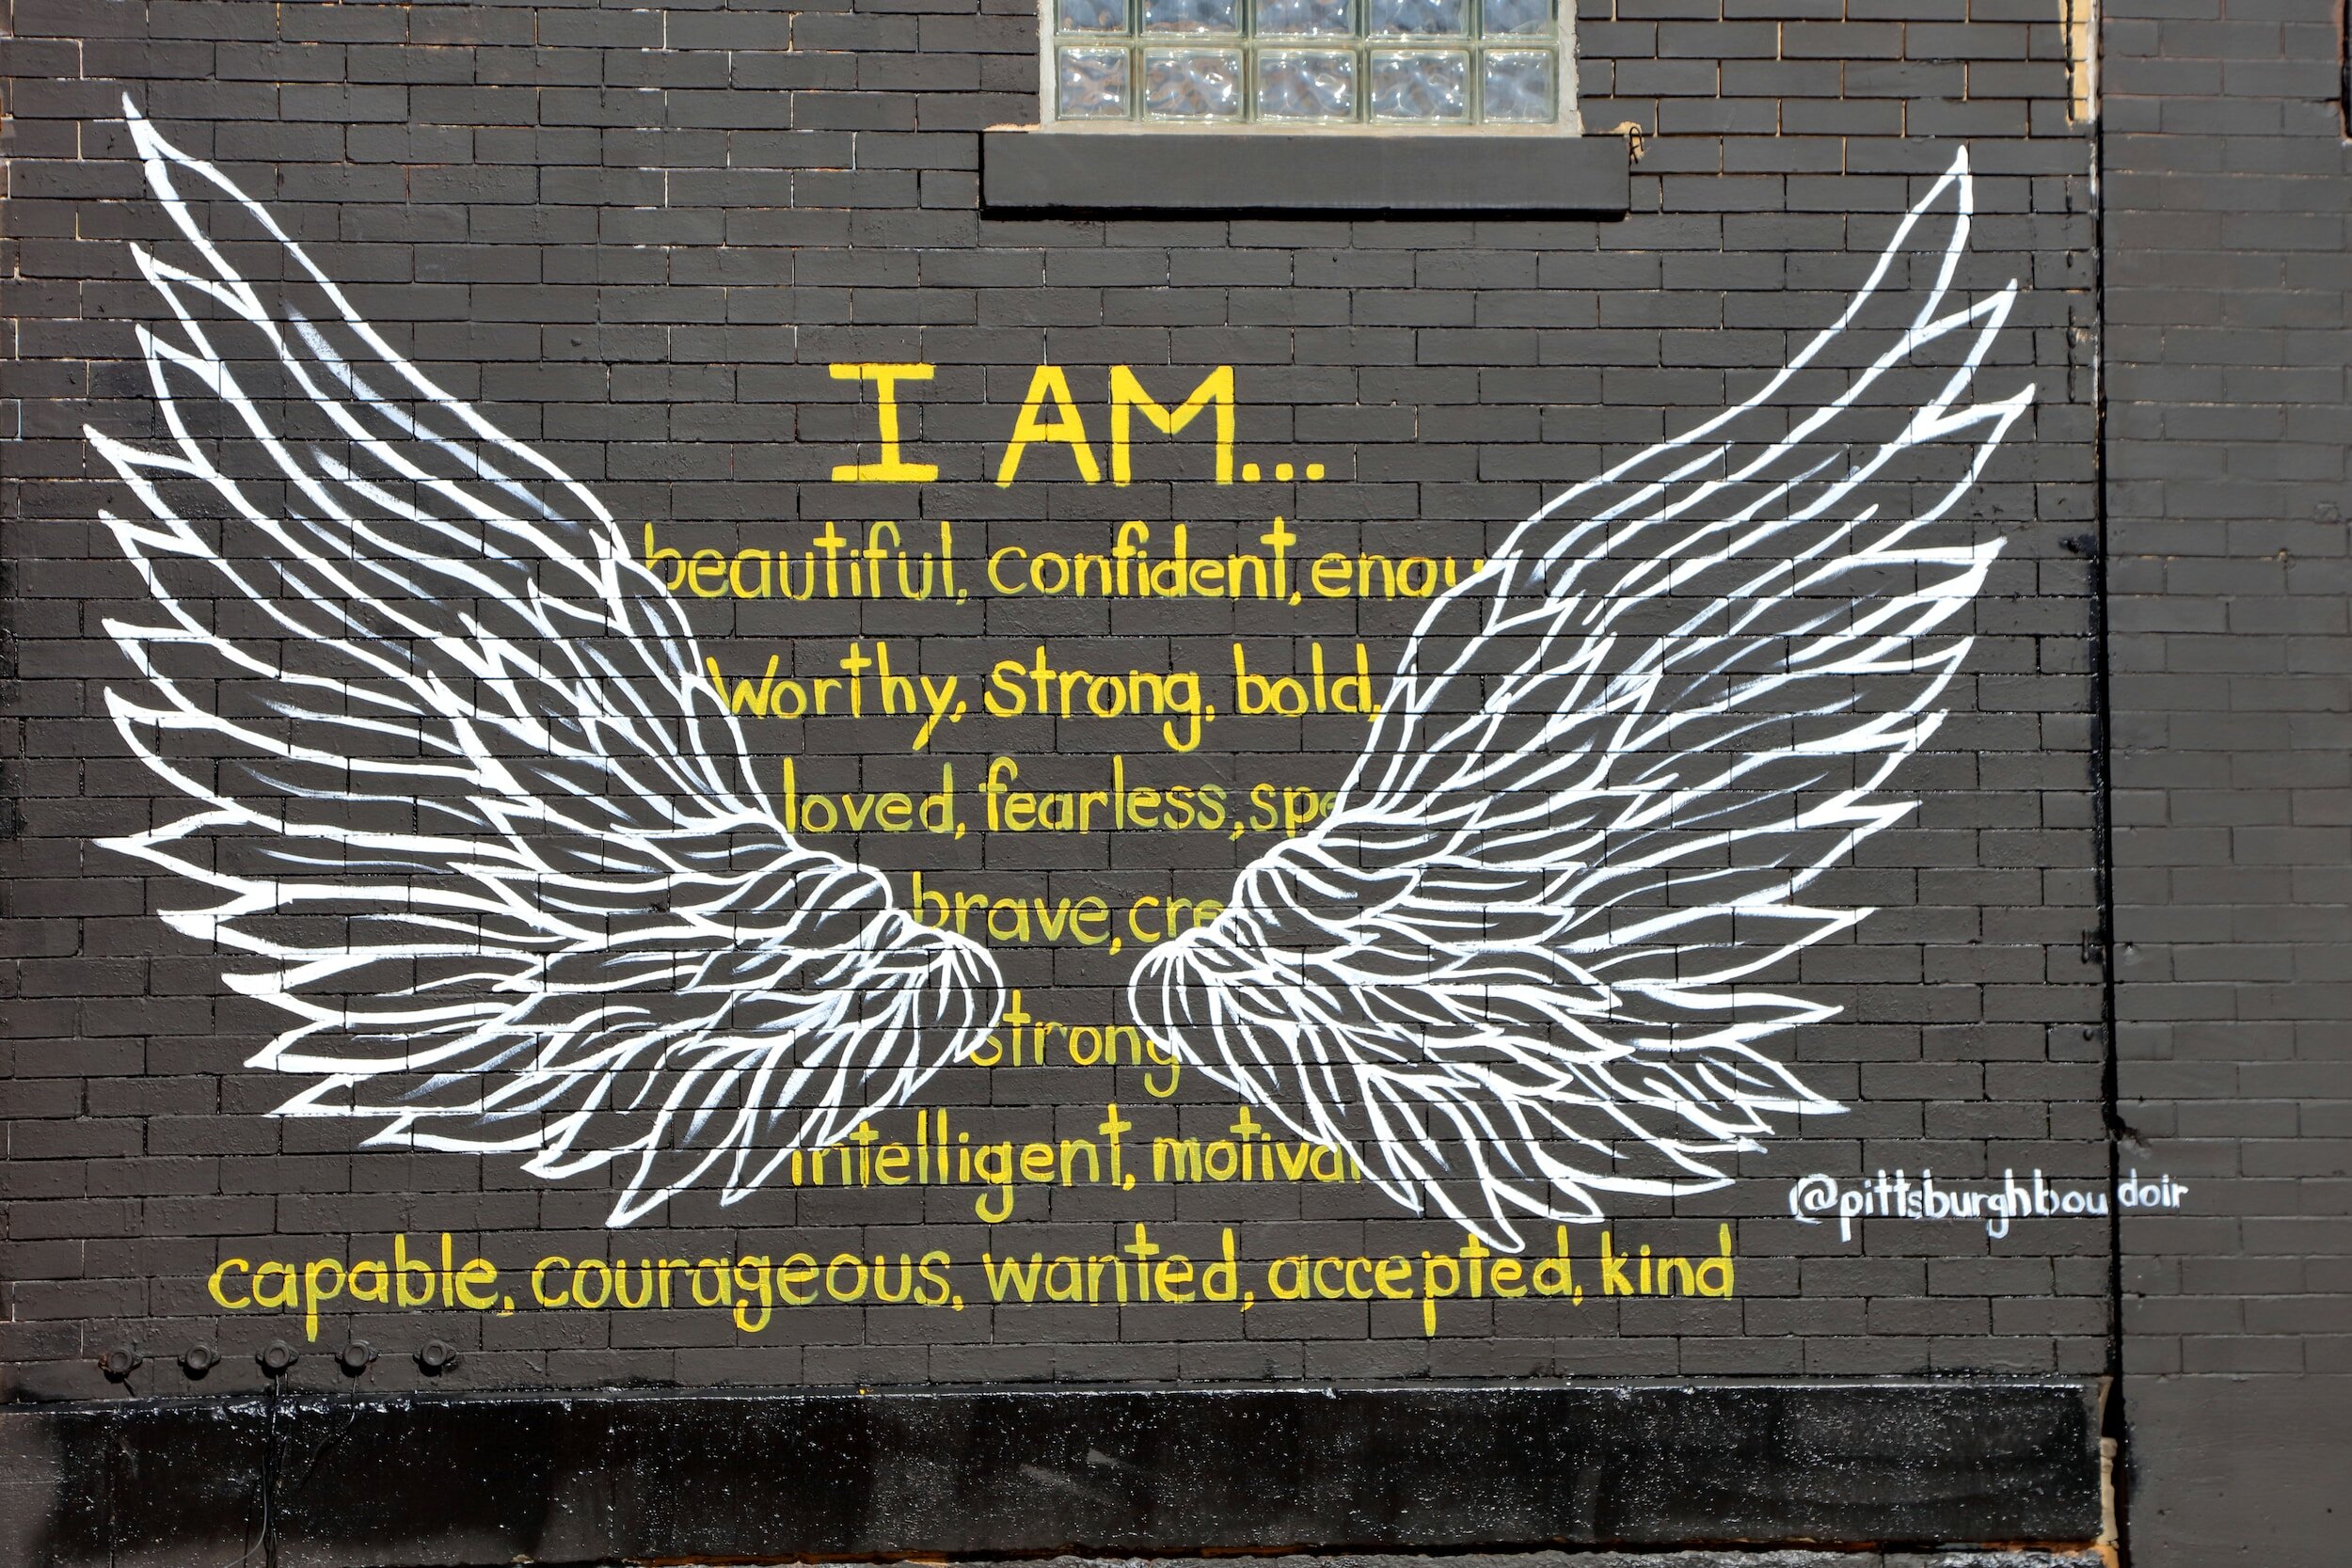 I AM...
beautiful, confident, enou
Worthy, strong, bold,
loved, fearless, spe
brave, cre
strong
intelligent, motivat
@pittsburghboudoir
capable, courageous, wanted, accepted, kind